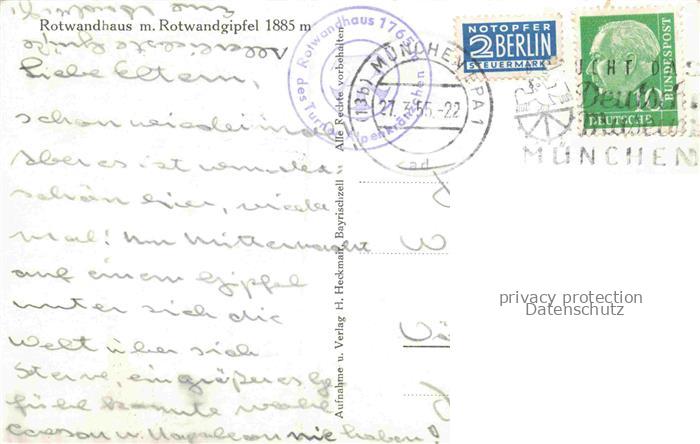 Rotwandhaus m. Rotwandgipfel 1885 m
Liebe Eltern,
schon wieder mal
Aber es ist
schön hier,
mal! Um Mitternacht
auf einem Gipfel
unter sich die
Welt über sich
Sterne, ein größeres Ge
fühl konnte wohl
Caesar u. Napoleon nie haben!
Alle Rechte vorbehalten
Aufnahme u. Verlag H. Heckmair, Bayrischzell
Rotwandhaus 1765
des Turner-Alpenkränzchen
(13b) MÜNCHEN BPA 1
27.3.55.-22
ad
NOTOPFER
2 BERLIN
STEUERMARKE
10
DEUTSCHE
BUNDESPOST
UCHT DA
Deutsche
Museum
MÜNCHEN
privacy protection
Datenschutz